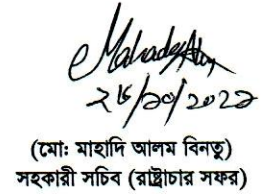 ২৮/১০/২০২১
(মোঃ মাহাদি আলম বিনতু)
সহকারী সচিব (রাষ্ট্রাচার সফর)